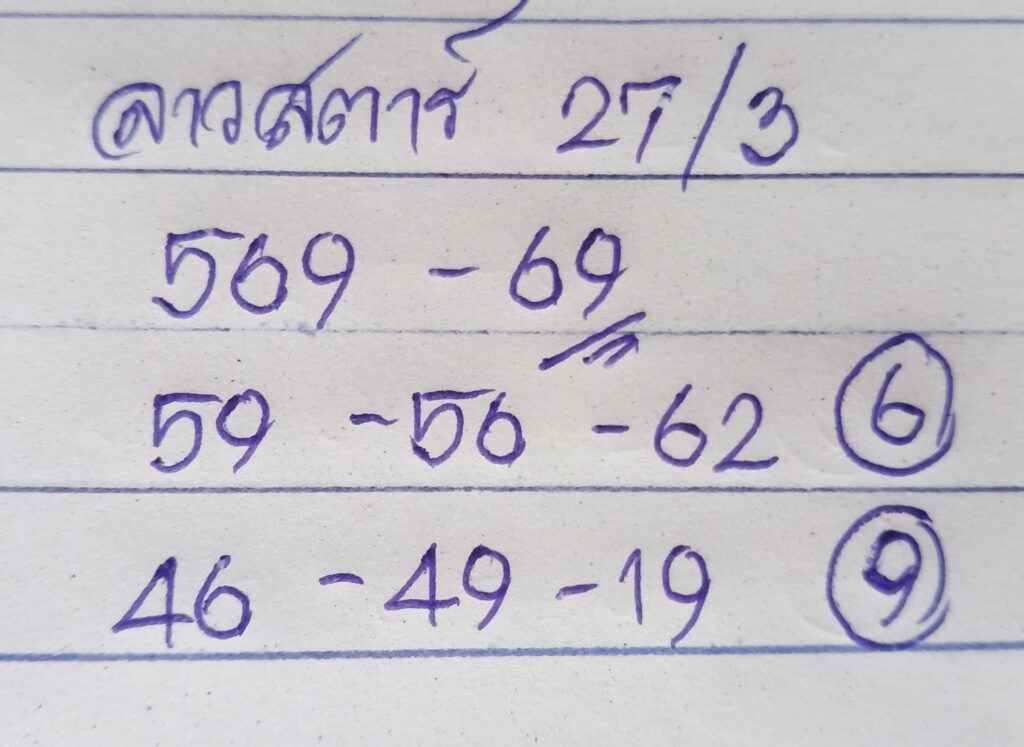 ลาวสตาร์ 27/3
569 - 69
59 - 56 - 62 6
46 - 49 - 19 9